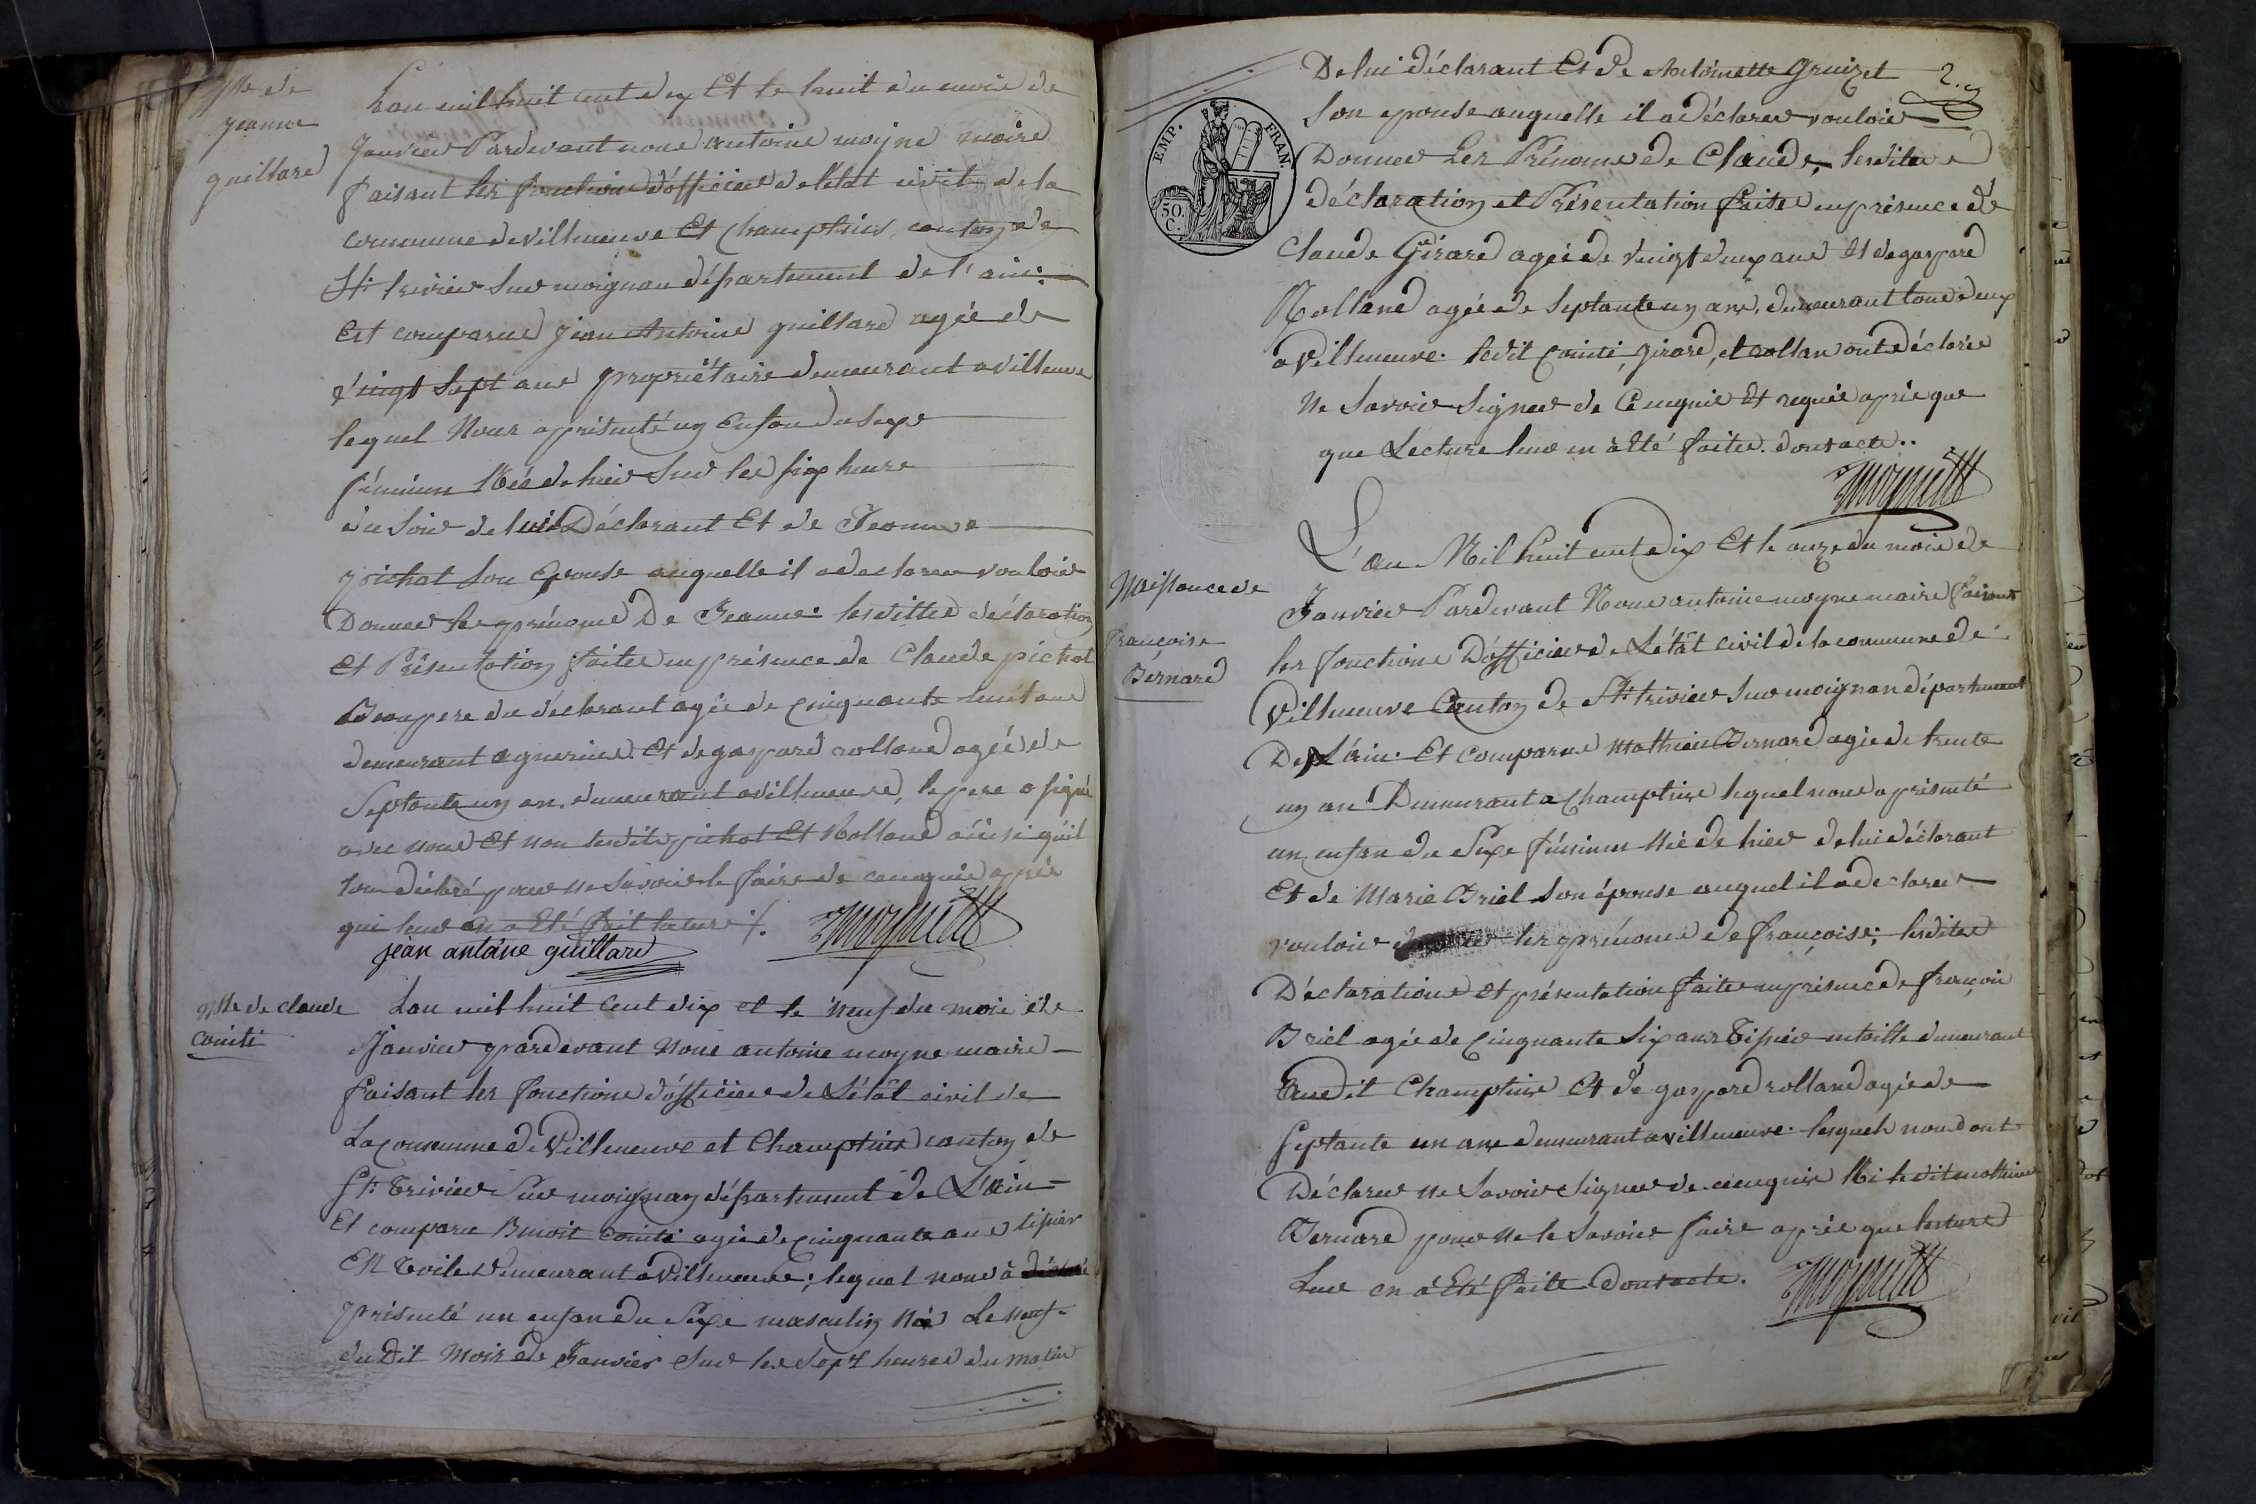 Nce de
jeanne
guillard
Lan mil huit cent dix Et le huit du mois de
Janvier Pardevant nous antoine moyne maire
faisant les fonctions d'officier de letat civil de la
commune de villeneuve Et Champteins canton de
St. trivier sur moignan département de l'ain:
Est comparue jean Antoine guillard agée de
vingt sept ans propriétaire demeurant a villeneuve
lequel Nous a présenté un Enfan du Sexe
féminin Née de hier sur les six heure
du soir de lui Déclarant Et de Jeanne
pichat son Epouse auquelle il a declarer vouloir
Donner les prénoms De Jeanne: lesdittes déclaration
et Présentation faites en présence de Claude pichat
Beaupere du déclarant agée de Cinquante huit ans
demeurant a guerins Et de gaspard rolland agée de
Septante un an demeurant a villeneuve, le pere a signé
avec nous Et non lesdits pichat Et Rolland ainsi qu'il
lon déclaré pour ne savoir le faire de ce enquis après
que leur en a Eté fait lature ./.
jean antoine guillard
Moyne
Nce de claude
Comté
Lan mil huit Cent dix et le neuf du mois de
Janvier pardevant Nous antoine moyne maire
faisant les fonctions d'officier de L'état civil de
La Commune de Villeneuve et Champteins canton de
St. trivier sur moignan département de L'ain
Et comparu Benoit comté agée de cinquante ans tisier
EN toile demeurant a Villeneuve; lequel nous à
présenté un enfan du Sexe masculin Née Le neuf
du Dit Mois de Janvier sur les sept heures du matin
2.
EMP. FRAN.
50. C.
De lui déclarant Et De Antoinette Gruizet
Son epouse auquelle il a déclarer vouloir
Donner Les Prénoms de Claude, lesdites
déclaration et Présentation faites en présence de
Claude Girard agée de vingt deux ans Et de gaspard
Rolland agée de Septante un ans, demeurant tous deux
a Villeneuve. ledit Comté, girard, et rollan ont déclarée
Ne savoir signer de Ce enquis Et requis après que
que Lecture leur en à été faites. dont acte..
Moyne
Naissance de
françoise
Bernard
L'an Mil huit cent dix Et le onze du mois de
Janvier Pardevant Nous antoine moyne maire faisant
les fonctions D'officier de L'état civil de la commune de
Villeneuve Canton de St. trivier sur moignan département
De L'ain. Et comparue Mathieu Bernard agée de trente
un an Demeurant a Champteins lequel nous a présenté
un enfan du Sexe féminin Née de hier de lui déclarant
Et de Marie Briel Son épouse auquel il a declarer
vouloir les prénoms de françoise; lesdites
Déclarations Et présentation faites en présence de françois
Briel agée de Cinquante Six ans Tissier en toille demeurant
Audit Champteins Et de gaspard rolland agée de
Septante un ans demeurant a villeneuve. lesquels nous ont
Déclarer ne Savoir Signer de ce enquis Ni ledit mathieu
Bernard pour ne le Savoir faire après que lecture
Leur en à Eté faite Dont acte.
Moyne